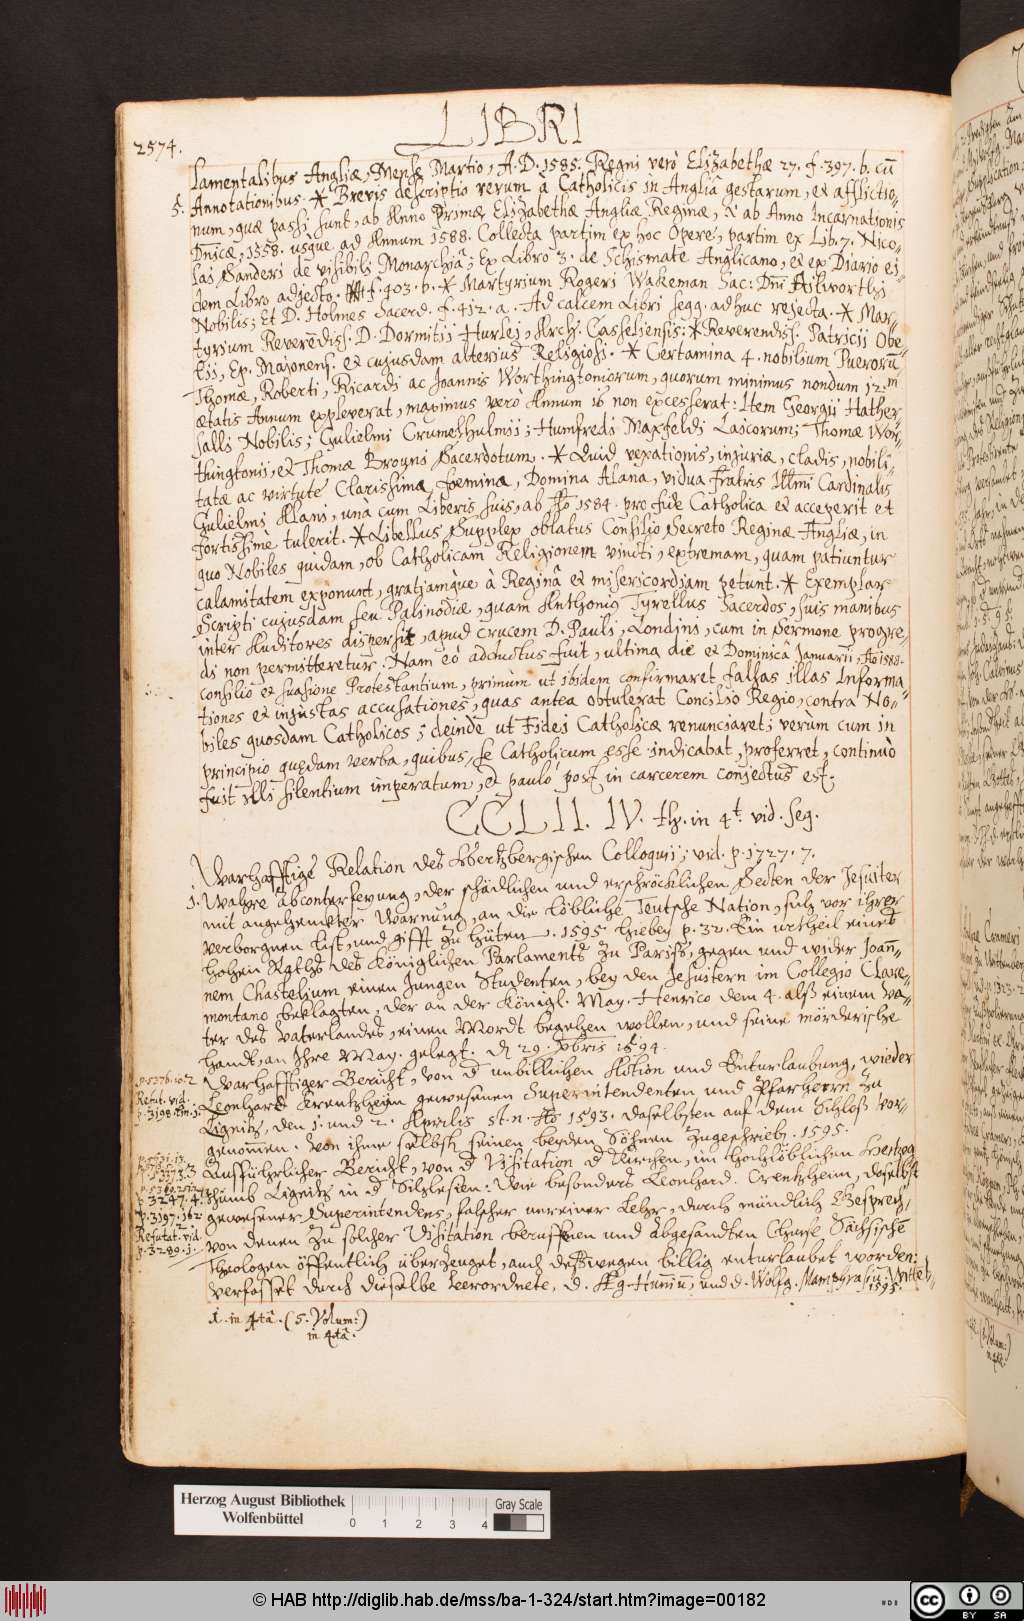 LIBRI
2574.
lamentalibus Angliæ, Mense Martio, A. D. 1585. Regni verò Elizabethæ 27. f. 397. b. cū
Annotationibus. * Brevis descriptio rerum à Catholicis in Angliâ gestarum, et afflictio-
num, quæ passi sunt, ab Anno primæ Elizabethæ Angliæ Reginæ, & ab Anno Incarnationis
Dnicæ, 1558. usque ad Annum 1588. Collecta partim ex hoc Opere, partim ex Lib. 7. Nico-
lai Sanderi de visibili Monarchiâ; Ex Libro 3. de Schismate Anglicano, et ex Diario ei-
dem Libro adjecto. f. 403. b. * Martyrium Rogeri Wakeman Sac: Dni Ailworthi
Nobilis; Et D. Holmes Sacerd. f. 412. a. Ad calcem Libri segg. adhuc rejecta. * Mar-
tyrium Reverēdiss. D. Dormitii Hurlei, Arch. Casseliensis: * Reverendiss. Patricii Obe-
lii, Ep. Majonens. et cujusdam alterius Religiosi. * Certamina 4. nobilium Puerorū
Thomæ, Roberti, Ricardi ac Joannis Worthingtoniorum, quorum minimus nondum 12.m
ætatis Annum expleverat, maximus verò Annum 16 non excesserat: Item Georgii Hather-
salli Nobilis; Gulielmi Crumeshulmii; Humfredi Maxfeldi Laicorum; Thomæ Wor-
thingtonii, et Thomæ Brouni Sacerdotum. * Quid vexationis, injuriæ, cladis, nobili-
tatæ ac virtute Clarissimæ fœminæ, Domina Alana, vidua fratris Illmi Cardinalis
Gulielmi Alani, una cum Liberis suis, ab Aō 1584. pro fide Catholica et acceperit et
fortissimè tulerit. * Libellus Supplex oblatus Consilio Secreto Reginæ Angliæ, in
quo Nobiles quidam, ob Catholicam Religionem vincti, extremam, quam patiuntur
calamitatem exponunt, gratiamque à Reginâ et misericordiam petunt. * Exemplar
Scripti cujusdam seu Palinodiæ, quam Anthonius Tyrellus Sacerdos, suis manibus
inter Auditores dispersit, apud crucem D. Pauli, Londini, cum in Sermone progre-
di non permitteretur. Nam eò adductus fuit, ultima die et Dominicâ Januarii, Aō 1588.
consilio et suasione Protestantium, primùm ut ibidem confirmaret falsas illas Informa-
tiones et injustas accusationes, quas antea obtulerat Concilio Regio, contra No-
biles quosdam Catholicos; deinde ut Fidei Catholicæ renunciaret; verum cum in
principio quædam verba, quibus se Catholicum esse indicabat, proferret, continuò
fuit illi silentium imperatum, et paulò post in carcerem conjectus est.
CCLII. IV. th. in 4t. vid. seg.
Warhafftige Relation des Hertzbergischen Colloquii; vid. p. 1727. 7.
1. Wahre abconterfeyung, der schädlichen und erschröcklichen Secten der Jesuiter
mit angehenckter Warnung, an die Löbliche Teutsche Nation, sich vor ihrer
verborgnen list, und gifft zu hüten. 1595 hiebey p. 32. Ein urtheil eines
hohen Raths des Königlichen Parlaments zu Pariß, gegen und wider Joañ-
nem Chastelium einen Jungen Studenten, bey den Jesuitern im Collegio Clare-
montano beklagten, der an der Königl. May. Henrico dem 4. alß einem Va-
ter des Vaterlandes, einen Mordt begehen wollen, und seine mörderische
handt, an Ihre May. gelegt. 29. Xbris 1594.
Warhafftiger Bericht, von d unbillichen Action und Enturlaubung, wieder
Leonhard Krentzheim gewesenen Superintendenten und Pfarherrn zu
Lignitz, den 1. und 2. Aprilis st. n. Aō 1593. daselbsten auf dem Schloß vor-
genommen. Von ihme selbst seinen beyden Söhnen zugeschrieb. 1595.
Ausführlicher Bericht, von d Visitation d Kirchen, im hochlöblichen Hertzog-
thumb Lignitz in d Schlesien: Wie besonders Leonhard. Crentzheim, daselbst
gewesener Superintendens, falscher unreiner Lehr, durch mündlich Gesprech,
von denen zu solcher Visitation beruffenen und abgesandten Churf. Sächsischē
Theologen öffentlich überzeuget, auch deßwegen billig enturlaubet worden:
verfasset durch dieselbe Verordnete, d. Æg. Hunniū, und d. Wolfg. Mamphrasiū Wittel,
1595.
Refut. vid.
p. 3198. lin. 1.
3247. 4.
3197. 162
Refutat. vid.
p. 3289. 1.
1. in 4tâ. (5. Volum:)
in 4tâ.
Herzog August Bibliothek
Wolfenbüttel
0 1 2 3 4
Gray Scale
© HAB http://diglib.hab.de/mss/ba-1-324/start.htm?image=00182
CC BY SA